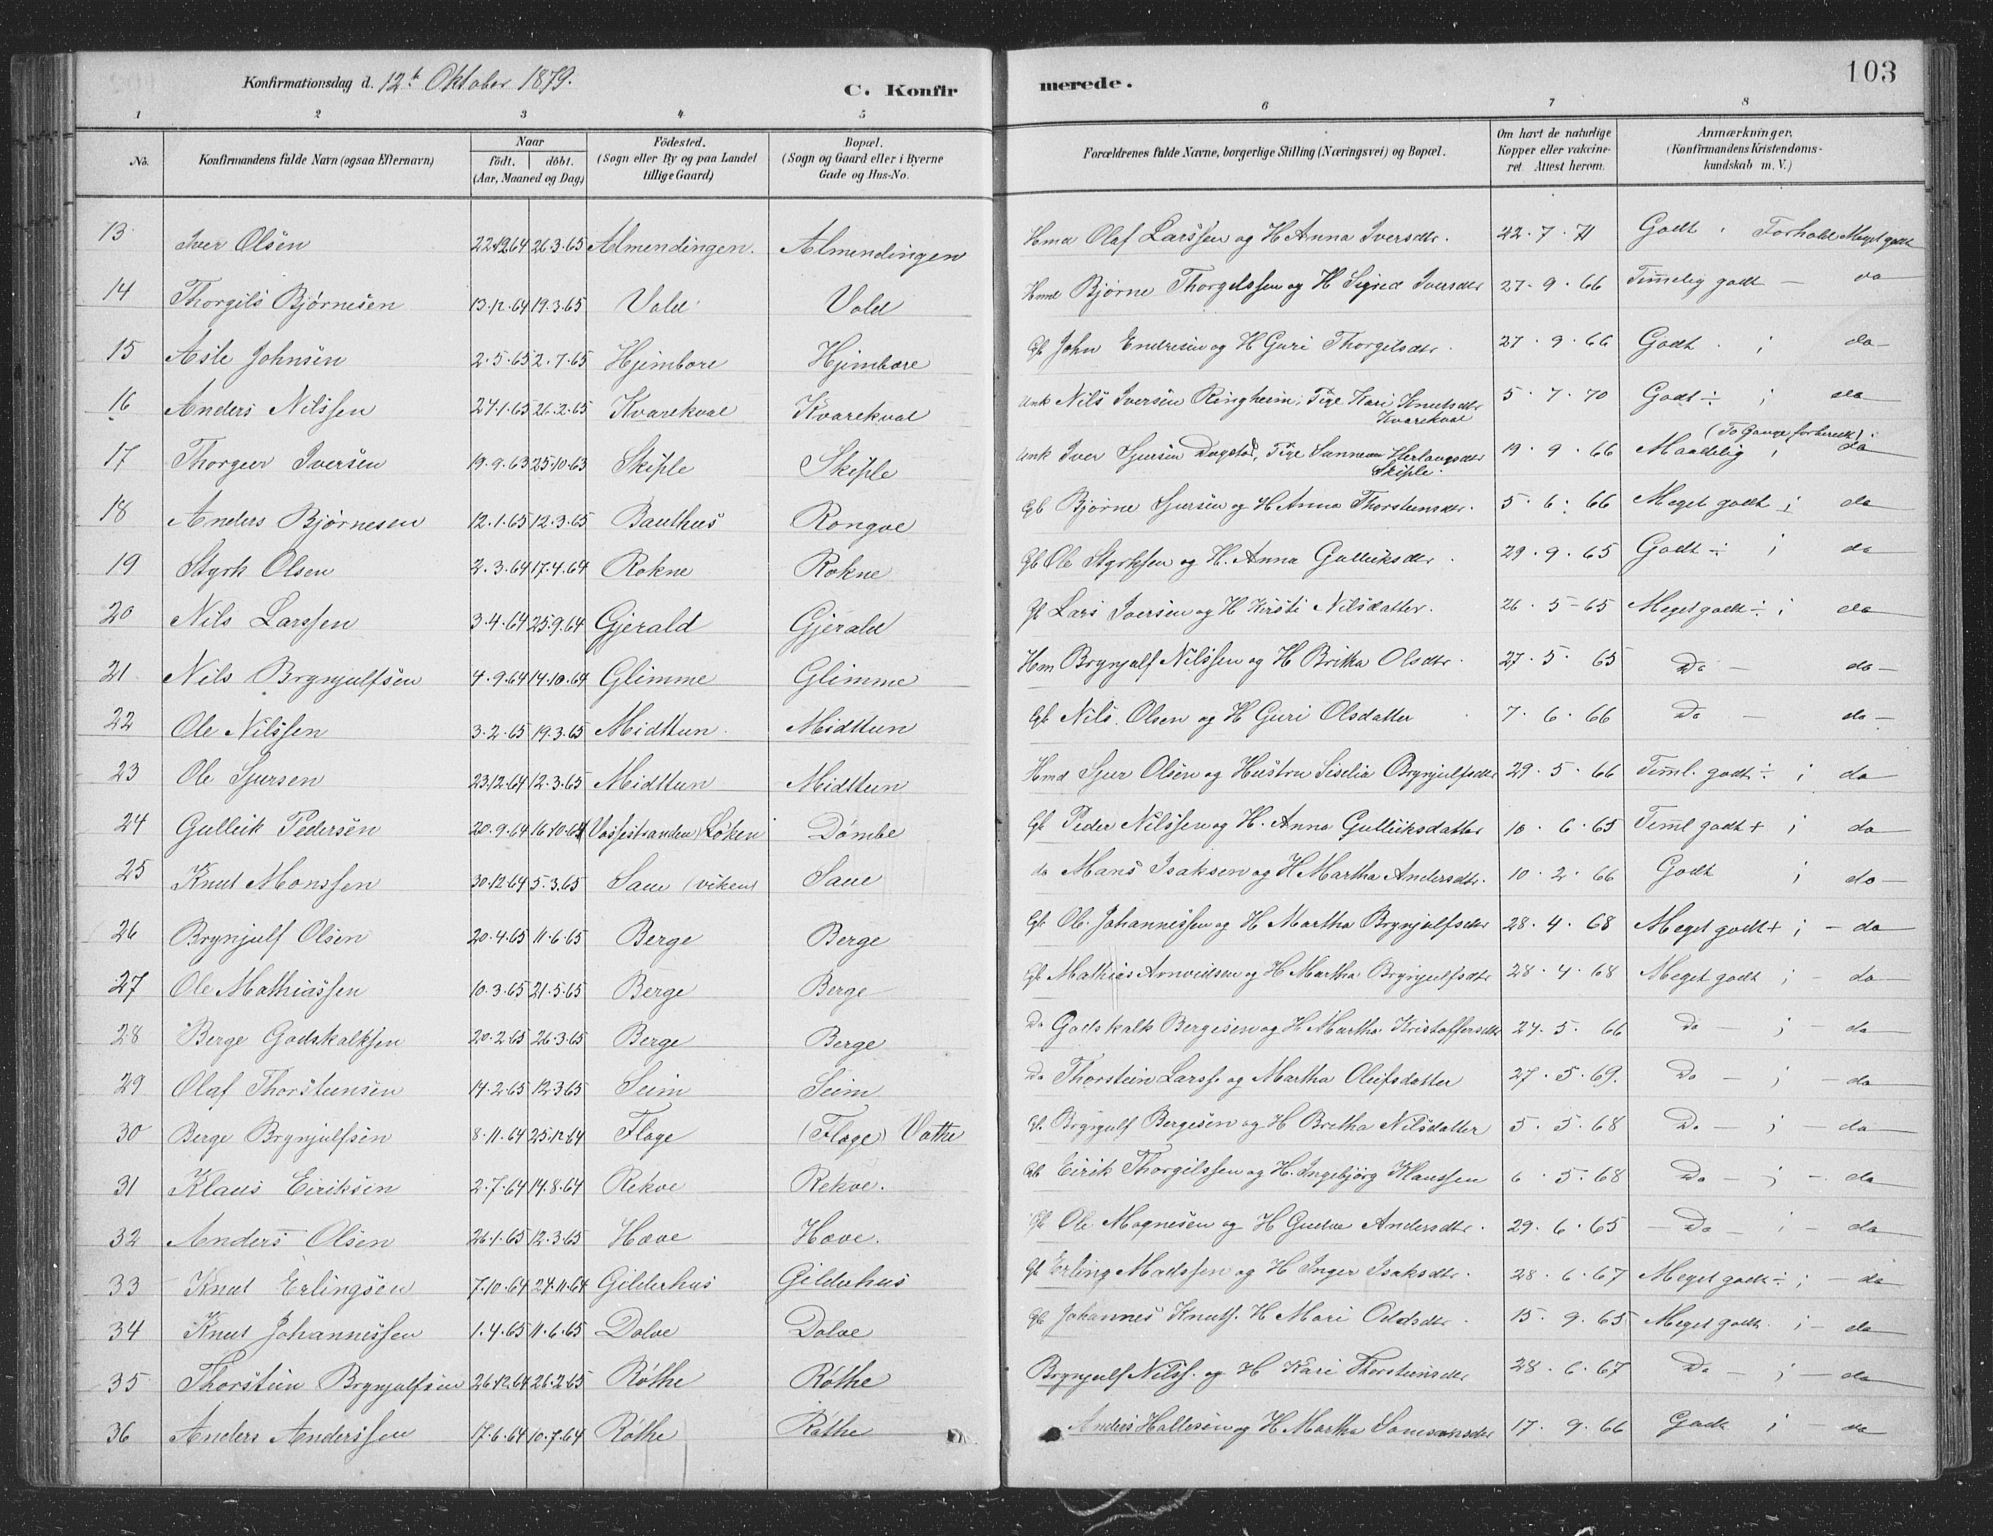 Konfirmationsdag d. 12te Oktober 1879. C. Konfirmerede. 103
1 2 3 4 5 6 7 8
No. Konfirmandens fulde Navn (ogsaa Efternavn) Naar födt. döbt. (Aar, Maaned og Dag.) Födested. (Sogn eller By og paa Landet tillige Gaard) Bopæl. (Sogn og Gaard eller i Byerne Gade og Hus-No. Forældrenes fulde Navne, borgerlige Stilling (Næringsvei) og Bopæl. Om havt de naturlige Kopper eller vakcineret. Attest herom. Anmærkninger. (Konfirmandens Kristendomskundskab m. V.)
13 Iver Olsen 22.12.64 26.3.65 Almendingen. Almendingen Hmd Olaf Larssen og H Anna Iversdtr. 22.7.71 Godt. Forhold Meget godt
14 Thorgils Bjørnesen 13.12.64 19.3.65 Vold Vold Hmd Bjørne Thorgilssen og H Sigrid Iversdtr 27.9.66 Temmelig godt - do
15 Asle Johnsen 2.5.65 2.7.65 Hjembore Hjembore Gb John Endresen og H Guri Thorgilsdtr. 27.9.66 Godt. ; do
16 Anders Nilssen 27.1.65 26.2.65 Kvarekval Kvarekval Unk Nils Iversen Ringheim, Pige Kari Knutsdtr Kvarekval 5.7.70 Godt ÷ ; do
17 Thorgeir Iversen 19.9.63 25.10.63 Skiple Skiple Unk Iver Sjursen Dagstad, Pige Herlaugsdtr Skiple. 19.9.66 Maadelig (To Gange forberedt) ; do
18 Anders Bjørnesen 12.1.65 12.3.65 Bauthus Rongve Gb Bjørne Sjursen og H Anna Thorsteinsdtr. 5.6.66 Meget godt ; do
19 Styrk Olsen 2.3.64 17.4.64 Rokne Rokne Gb Ole Styrksen og H. Anna Gulleiksdtr. 29.9.65 Godt ÷ ; do
20 Nils Larssen 3.4.64 25.9.64 Gjerald Gjerald Gb Lars Iversen og H Kirsti Nilsdatter. 26.5-65 Meget godt ÷ ; do
21 Nils Brynjulfsen 4.9.64 14.10.64 Glimme Glimme Hm Brynjulf Nilssen og H Britha Olsdtr. 27.5.65 Do - do -
22 Ole Nilssen 3.2.65 19.3.65 Midttun Midttun Gb Nils Olsen og H Guri Olsdatter 7.6.66 Do - do -
23 Ole Sjursen 23.12.64 12.3.65 Midttun Midttun Hmd Sjur Olsen og Hustru Siselia Brynjulfsdtr 29.5.66 Teml. godt ÷ ; do
24 Gulleik Pedersen 20.9.64 16.10.64 Vossestranden Løken Dømbe Gb Peder Nilssen og H. Anna Gulleiksdatter 10.6.65 Teml godt + ; do
25 Knut Monssen 30.12.64 5.3.65 Saue (viken) Saue do Mons Isaksen og H Martha Andersdtr. 10.2.66 Godt ; do -
26 Brynjulf Olsen 20.4.65 11.6.65 Berge Berge Gb Ole Johannessen og H Martha Brynjulfsdtr 28.4.68 Meget godt + ; - do
27 Ole Mathiassen 10.3.65 21.5.65 Berge Berge Gb Mathias Arnvidsen og H Martha Brynjulfsdtr 28.4.68 Meget godt ; - do
28 Berge Godskalksen 20.2.65 26.3.65 Berge Berge Do Godskalk Bergesen og H Martha Kristoffersdtr 27.5.66 Do - ; - do
29 Olaf Thorsteinsen 14.2.65 12.3.65 Seim Seim Do Thorstein Larss. og Martha Oleifsdatter 27.5.69. Do - ; - do
30 Berge Brynjulfsen 8.11.64 25.12.64 Flage (Flage) Vathe Gb. Brynjulf Bergesen og H Britha Nilsdatter 5.5.68 Do - ; - do
31 Klaus Eiriksen 2.7.64 14.8.64 Rekve Rekve. Gb Eirik Thorgilssen og H. Ingebjørg Klaussen 6.5.68 Do - ; - do
32 Anders Olsen 26.1.65 12.3.65 Hæve Hæve. Gb Ole Magnesen og H Andersdtr. 29.6.65 - Do ; - do
33 Knut Erlingsen 7.10.64 27.11.64 Gilderhus Gilderhus Gb Erling Madssen og H Inger Isaksdtr. 28.6.67 Meget godt ÷ ; - do
34 Knut Johannessen 1.4.65 11.6.65 Dolve Dolve Gb Johannes Knuts. H Mari Oddsdtr 15.9.65 Meget godt. ; - do
35 Thorstein Brynjulfsen 26.12.64 26.2.65 Røthe Røthe Brynjulf Nilss. og H Kari Thorsteinsdtr 28.6.67 Do - ; - do
36 Anders Anderssen 17.6.64 10.7.64 Røthe Røthe Anders Hallesen og H Martha Samsonsdtr 17.9.66 Godt ; - do